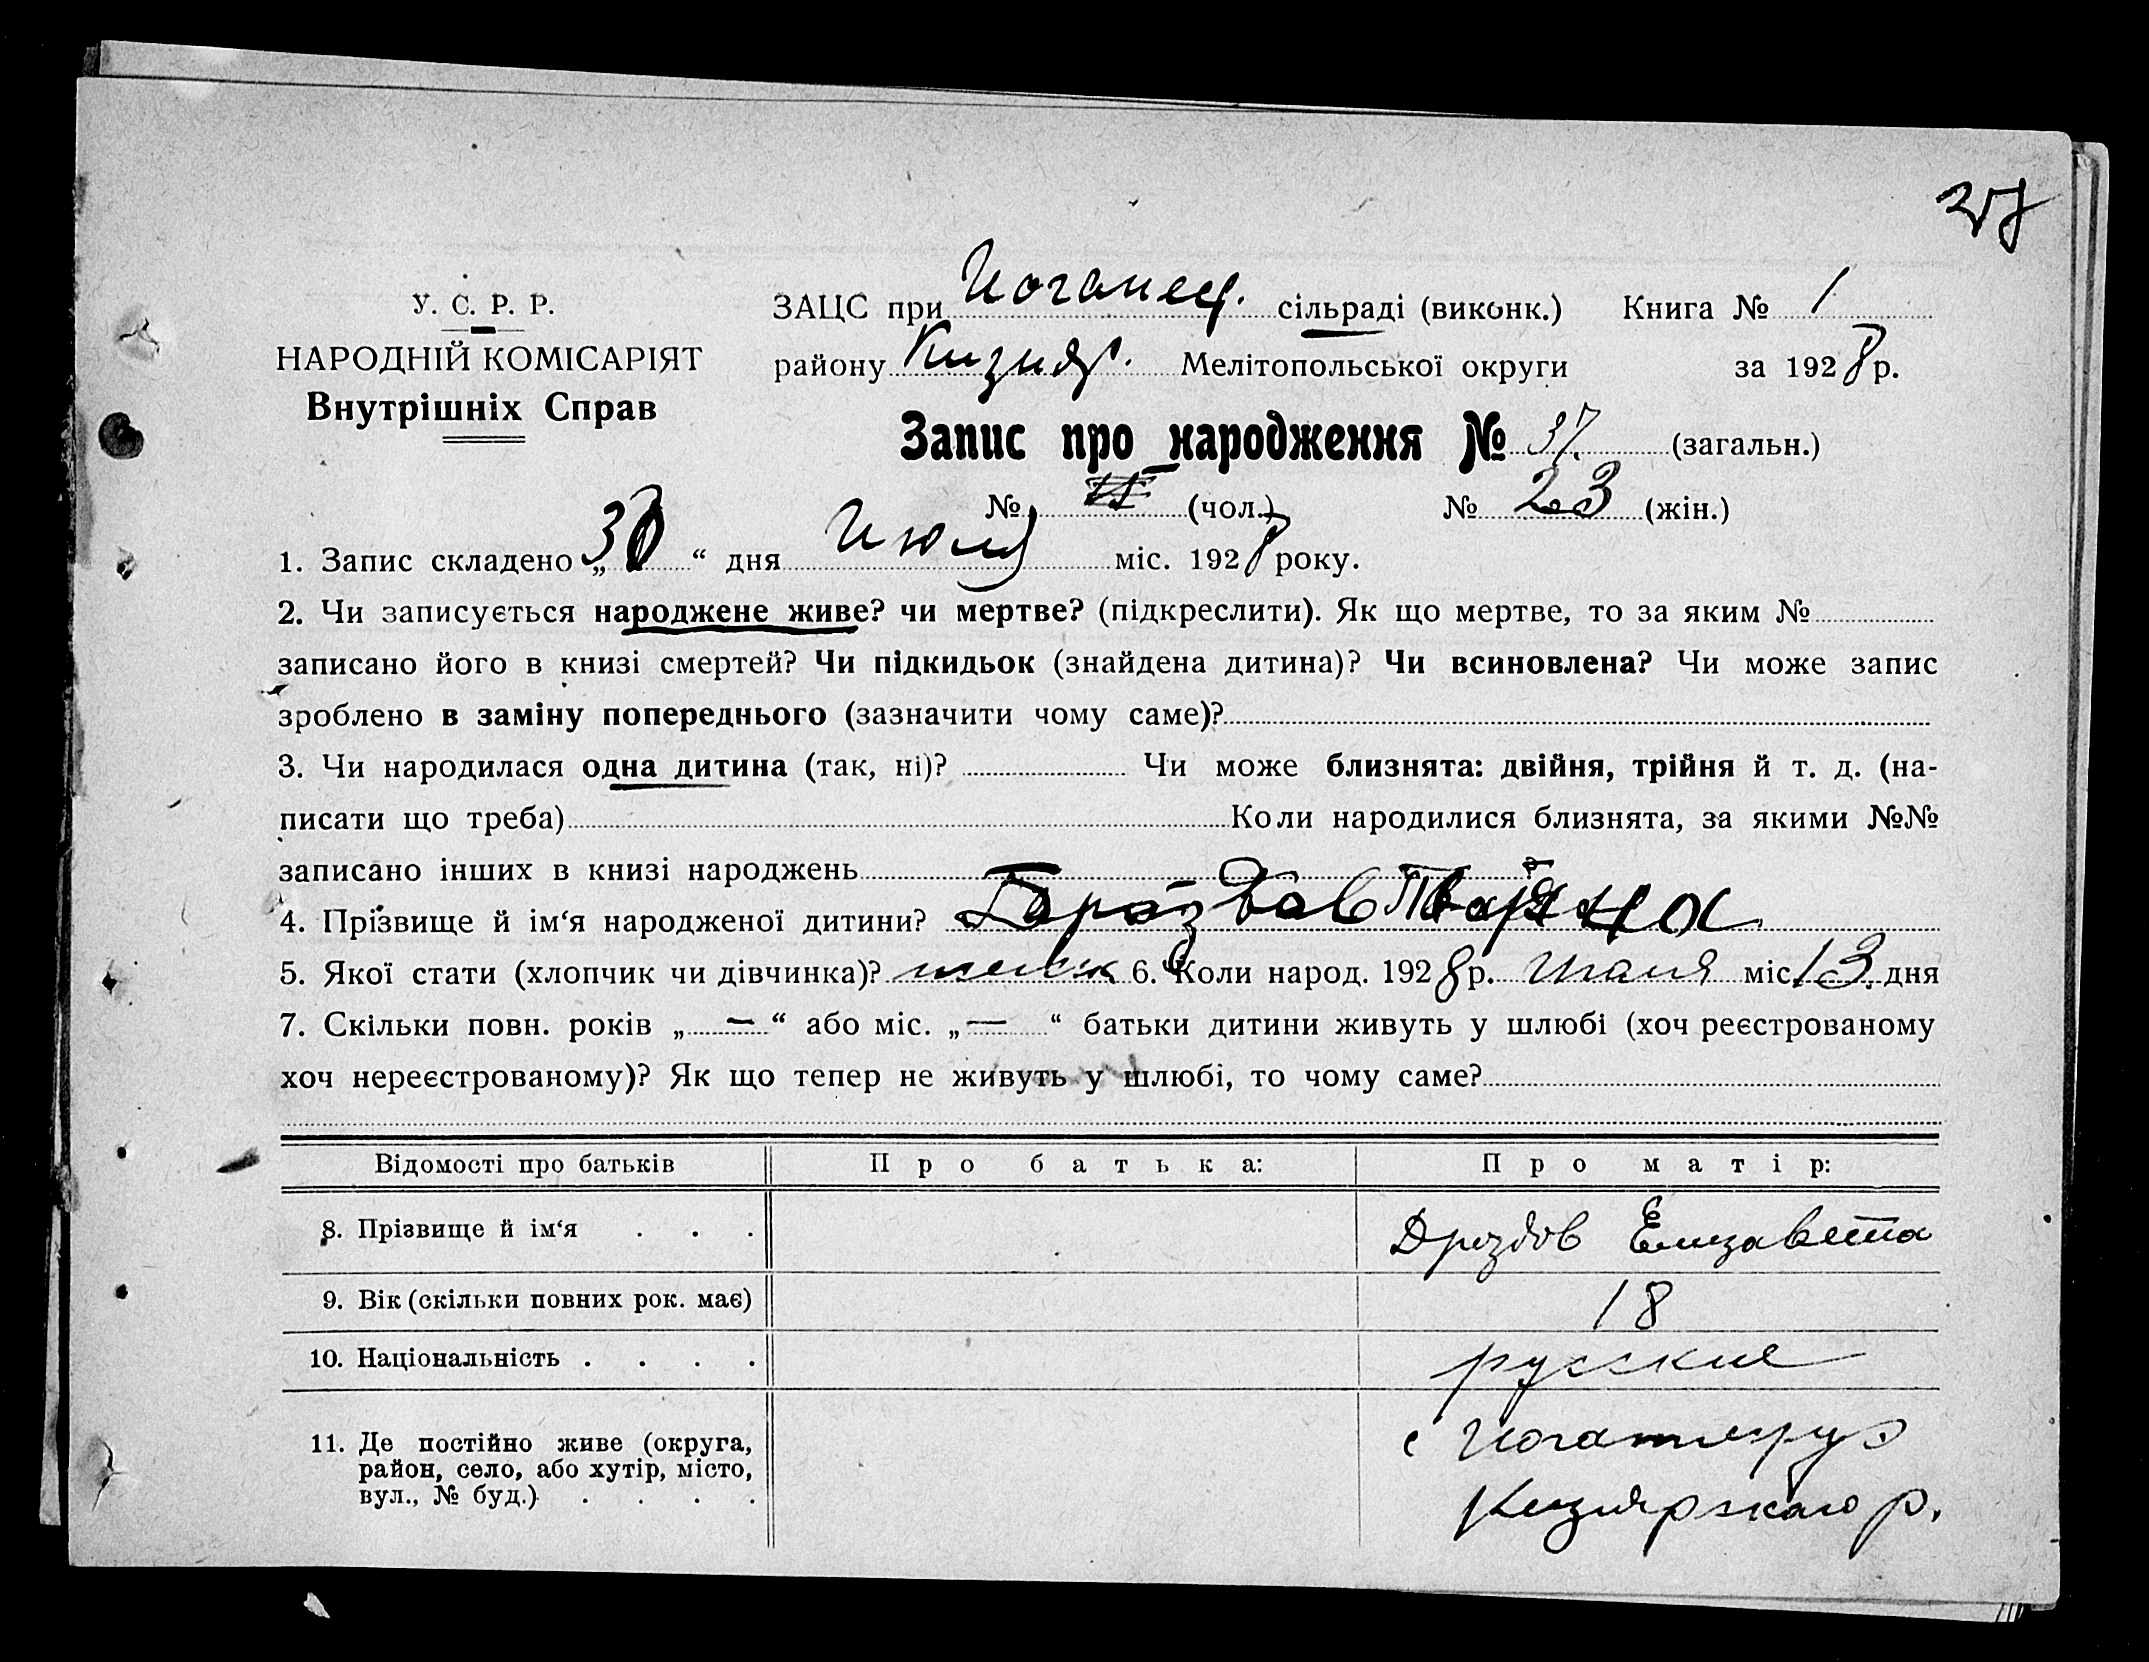 У. С. Р. Р.
НАРОДНІЙ КОМІСАРІЯТ
Внутрішніх Справ
ЗАЦС при Иоганец. сільраді (виконк.) Книга № 1
району Кизияр. Мелітопольської округи за 1928 р.
Запис про народження № 37. (загальн.)
№ (чол.) № 23 (жін.)
1. Запис складено „30“ дня Июля міс. 1928 року.
2. Чи записується народжене живе? чи мертве? (підкреслити). Як що мертве, то за яким №
записано його в книзі смертей? Чи підкидьок (знайдена дитина)? Чи всиновлена? Чи може запис
зроблено в заміну попереднього (зазначити чому саме)?
3. Чи народилася одна дитина (так, ні)? Чи може близнята: двійня, трійня й т. д. (на-
писати що треба) Коли народилися близнята, за якими №№
записано інших в книзі народжень
4. Прізвище й ім‘я народженої дитини?
5. Якої стати (хлопчик чи дівчинка)? женск 6. Коли народ. 1928 р. міс 13 дня
7. Скільки повн. років „ — “ або міс. „ — “ батьки дитини живуть у шлюбі (хоч реєстрованому
хоч нереєстрованому)? Як що тепер не живуть у шлюбі, то чому саме?
Відомості про батьків Про батька: Про матір:
8. Прізвище й ім‘я . . . Дроздов Елизавета
9. Вік (скільки повних рок. має) 18
10. Національність . . . . русские
11. Де постійно живе (округа,
район, село, або хутір, місто,
вул., № буд.) . . . .
с
Кизиярскаго р.